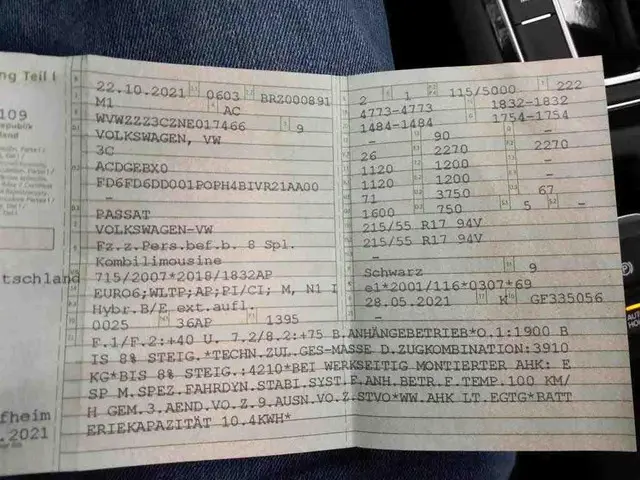 ng Teil I
109
epublik
land
tschland
fheim
.2021
22.10.2021 0603 BRZ000891
M1 AC
WVWZZZ3CZNE017466 9
VOLKSWAGEN, VW
3C
ACDGEBX0
FD6FD6DD001POPH4BIVR21AA00
–
PASSAT
VOLKSWAGEN-VW
Fz.z.Pers.bef.b. 8 Spl.
Kombilimousine
715/2007*2018/1832AP
EURO6;WLTP;AP;PI/CI; M, N1 I
Hybr.B/E ext.aufl.
0025 36AP 1395
2 1 115/5000 222
4773-4773 1832-1832
1484-1484 1754-1754
– 90 –
26 2270 2270
1120 1200 –
1120 1200 –
71 3750 67
1600 750 5 –
215/55 R17 94V
215/55 R17 94V
–
Schwarz 9
e1*2001/116*0307*69
28.05.2021 K GF335056
F.1/F.2:+40 U. 7.2/8.2:+75 B.ANHÄNGEBETRIEB*O.1:1900 B
IS 8% STEIG.*TECHN.ZUL.GES-MASSE D.ZUGKOMBINATION:3910
KG*BIS 8% STEIG.:4210*BEI WERKSEITIG MONTIERTER AHK: E
SP M.SPEZ.FAHRDYN.STABI.SYST.F.ANH.BETR.F.TEMP.100 KM/
H GEM.3.AEND.VO.Z.9.AUSN.VO.Z.STVO*WW.AHK LT.EGTG*BATT
ERIEKAPAZITÄT 10.4KWH*